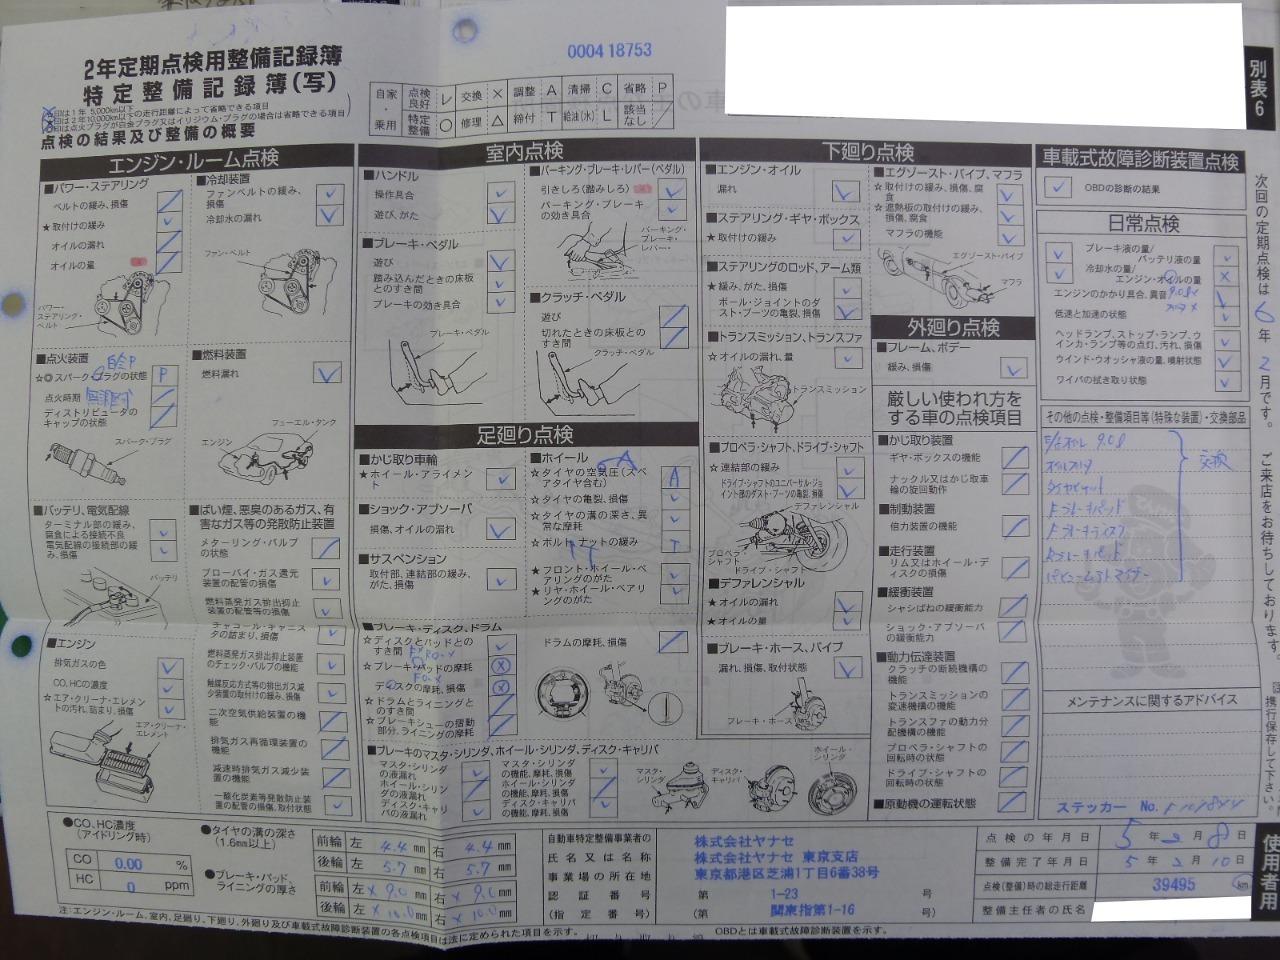 000418753
別表6
2年定期点検用整備記録簿
特定整備記録簿(写)
点検の結果及び整備の概要
自家・乗用
点検良好 レ 交換 × 調整 A 清掃 C 省略 P
特定整備 ○ 修理 △ 締付 T 給油(水) L 該当なし /
エンジン・ルーム点検
■パワー・ステアリング
ベルトの緩み、損傷
★取付けの緩み
オイルの漏れ
オイルの量
パワー・ステアリング・ベルト
■冷却装置
ファンベルトの緩み、損傷
冷却水の漏れ
ファン・ベルト
■点火装置
☆◎スパーク・プラグの状態 P
点火時期
ディストリビュータのキャップの状態
スパーク・プラグ
■燃料装置
燃料漏れ
フューエル・タンク
エンジン
■バッテリ、電気配線
ターミナル部の緩み、腐食による接続不良
電気配線の接続部の緩み、損傷
バッテリ
■ばい煙、悪臭のあるガス、有害なガス等の発散防止装置
メターリング・バルブの状態
ブローバイ・ガス還元装置の配管の損傷
燃料蒸発ガス排出抑止装置の配管等の損傷
チャコール・キャニスタの詰まり、損傷
燃料蒸発ガス排出抑止装置のチェック・バルブの機能
触媒反応方式等の排出ガス減少装置の取付けの緩み、損傷
二次空気供給装置の機能
排気ガス再循環装置の機能
減速時排気ガス減少装置の機能
一酸化炭素等発散防止装置の配管の損傷、取付状態
■エンジン
排気ガスの色
CO、HCの濃度
☆エア・クリーナ・エレメントの汚れ、詰まり、損傷
エア・クリーナ・エレメント
室内点検
■ハンドル
操作具合
遊び、がた
■ブレーキ・ペダル
遊び
踏み込んだときの床板とのすき間
ブレーキの効き具合
ブレーキ・ペダル
■パーキング・ブレーキ・レバー(ペダル)
引きしろ(踏みしろ)
パーキング・ブレーキの効き具合
パーキング・ブレーキ・レバー
■クラッチ・ペダル
遊び
切れたときの床板とのすき間
クラッチ・ペダル
足廻り点検
■かじ取り車輪
★ホイール・アライメント
■ショック・アブソーバ
損傷、オイルの漏れ
■サスペンション
取付部、連結部の緩み、がた、損傷
■ホイール
☆タイヤの空気圧(スペアタイヤ含む) A
☆タイヤの亀裂、損傷
☆タイヤの溝の深さ、異常な摩耗
★ボルト、ナットの緩み T
★フロント・ホイール・ベアリングのがた
★リヤ・ホイール・ベアリングのがた
■ブレーキ・ディスク、ドラム
☆ディスクとパッドとのすき間
☆ブレーキ・パッドの摩耗
ディスクの摩耗、損傷
☆ドラムとライニングとのすき間
☆ブレーキシューの摺動部分、ライニングの摩耗
ドラムの摩耗、損傷
■ブレーキのマスタ・シリンダ、ホイール・シリンダ、ディスク・キャリパ
マスタ・シリンダの液漏れ
ホイール・シリンダの液漏れ
ディスク・キャリパの液漏れ
マスタ・シリンダの機能、摩耗、損傷
ホイール・シリンダの機能、摩耗、損傷
ディスク・キャリパの機能、摩耗、損傷
マスタ・シリンダ
ディスク・キャリパ
ホイール・シリンダ
下廻り点検
■エンジン・オイル
漏れ
■ステアリング・ギヤ・ボックス
★取付けの緩み
■ステアリングのロッド、アーム類
★緩み、がた、損傷
ボール・ジョイントのダスト・ブーツの亀裂、損傷
■トランスミッション、トランスファ
☆オイルの漏れ、量
トランスミッション
■プロペラ・シャフト、ドライブ・シャフト
☆連結部の緩み
ドライブ・シャフトのユニバーサル・ジョイント部のダスト・ブーツの亀裂、損傷
デファレンシャル
プロペラ・シャフト
ドライブ・シャフト
■デファレンシャル
★オイルの漏れ
★オイルの量
■ブレーキ・ホース、パイプ
漏れ、損傷、取付状態
ブレーキ・ホース
■エグゾースト・パイプ、マフラ
☆取付けの緩み、損傷、腐食
☆遮熱板の取付けの緩み、損傷、腐食
マフラの機能
エグゾースト・パイプ
マフラ
外廻り点検
■フレーム、ボデー
緩み、損傷
厳しい使われ方をする車の点検項目
■かじ取り装置
ギヤ・ボックスの機能
ナックル又はかじ取車輪の旋回動作
■制動装置
倍力装置の機能
■走行装置
リム又はホイール・ディスクの損傷
■緩衝装置
シャシばねの緩衝能力
ショック・アブソーバの緩衝能力
■動力伝達装置
クラッチの断続機構の機能
トランスミッションの変速機構の機能
トランスファの動力分配機構の機能
プロペラ・シャフトの回転時の状態
ドライブ・シャフトの回転時の状態
■原動機の運転状態
車載式故障診断装置点検
OBDの診断の結果
日常点検
ブレーキ液の量/バッテリ液の量
冷却水の量/エンジン・オイルの量 ×
エンジンのかかり具合、異音
低速と加速の状態
ヘッドランプ、ストップ・ランプ、ウインカ・ランプ等の点灯、汚れ、損傷
ウインド・ウオッシャ液の量、噴射状態
ワイパの拭き取り状態
その他の点検・整備項目等(特殊な装置)・交換部品
交換
メンテナンスに関するアドバイス
ステッカー No.
次回の定期点検は 6年 2月です。 ご来店をお待ちしております。
●CO、HC濃度(アイドリング時)
CO 0.00 %
HC 0 ppm
●タイヤの溝の深さ(1.6mm以上)
前輪 左 4.4 mm 右 4.4 mm
後輪 左 5.7 mm 右 5.7 mm
●ブレーキ・パッド、ライニングの厚さ
前輪 左 × 9.0 mm 右 × 9.0 mm
後輪 左 × 10.0 mm 右 × 10.0 mm
自動車特定整備事業者の氏名又は名称 事業場の所在地 認証番号 (指定番号)
株式会社ヤナセ
株式会社ヤナセ 東京支店
東京都港区芝浦1丁目6番38号
第 1-23 号
(第 関東指第1-16 号)
点検の年月日 5年 2月 8日
整備完了年月日 5年 2月 10日
点検(整備)時の総走行距離 39495 km
整備主任者の氏名
使用者用
注:エンジン・ルーム、室内、足廻り、下廻り、外廻り及び車載式故障診断装置の各点検項目は法に定められた項目を示す。 OBDとは車載式故障診断装置を示す。